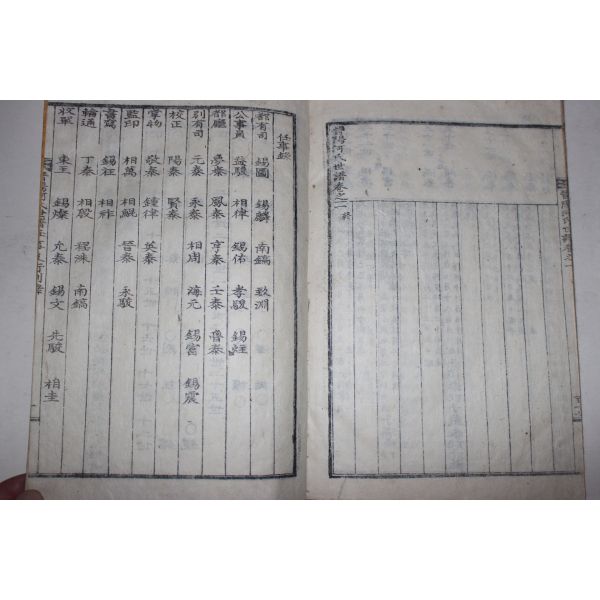 晉陽河氏世譜卷之二 終
任事錄
都有司 錫圖 錫麟 南鎬 致淵
公事員 益駿 相律 錫佑 孝駿 錫鉒
都廳 夢泰 鳳泰 亨泰 壬泰 魯泰
別有司 元泰 相周 海元 錫富 錫震
校正 陽泰 賢泰
掌物 敬泰 鍾律 英泰
監印 相萬 相鯤 晉泰 永駿
書寫 錫征 相祚
輪通 丁泰 相殷 南鎬
收單 錫燦 允泰 錫文 先駿 相圭